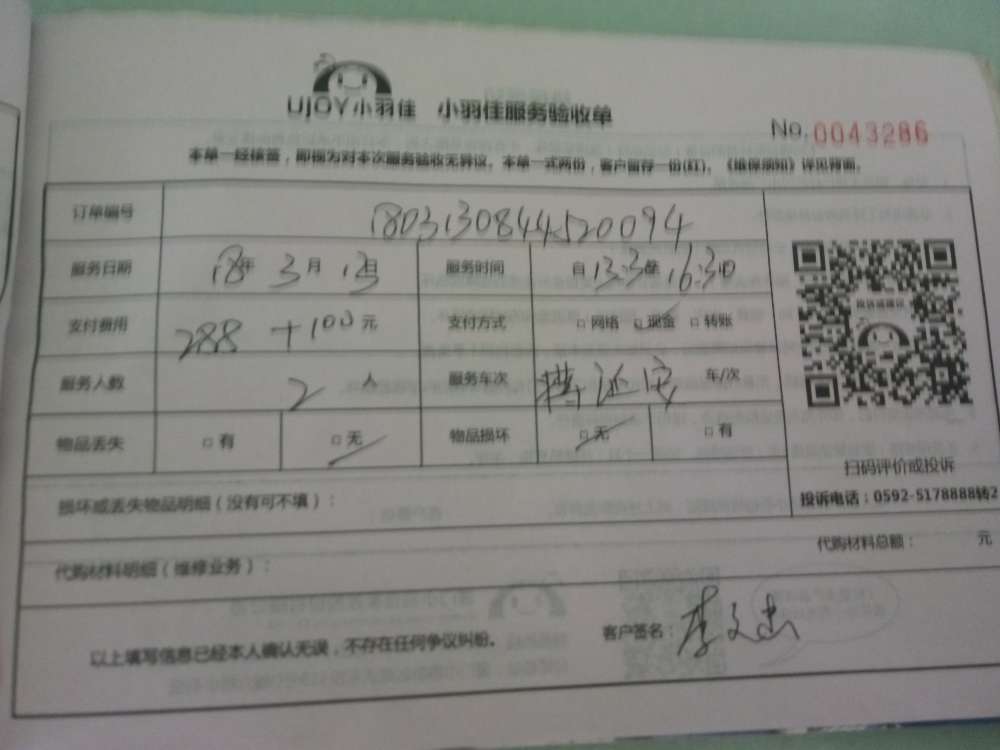 UJOY小羽佳 小羽佳服务验收单
No. 0043286
本单一经核签,即视为对本次服务验收无异议。本单一式两份,客户留存一份(红)。《维保须知》详见背面。
订单编号 1803130844520094
服务日期 18年 3月 13日 服务时间 自13:30至16:30
支付费用 288+100元 支付方式 □网络 □现金 □转账
服务人数 2人 服务车次 车/次
物品丢失 □有 □无 物品损坏 □无 □有
扫码评价或投诉
投诉电话:0592-5178888转2
损坏或丢失物品明细(没有可不填):
代购材料总额: 元
代购材料明细(维修业务):
以上填写信息已经本人确认无误,不存在任何争议纠纷。 客户签名:李文忠